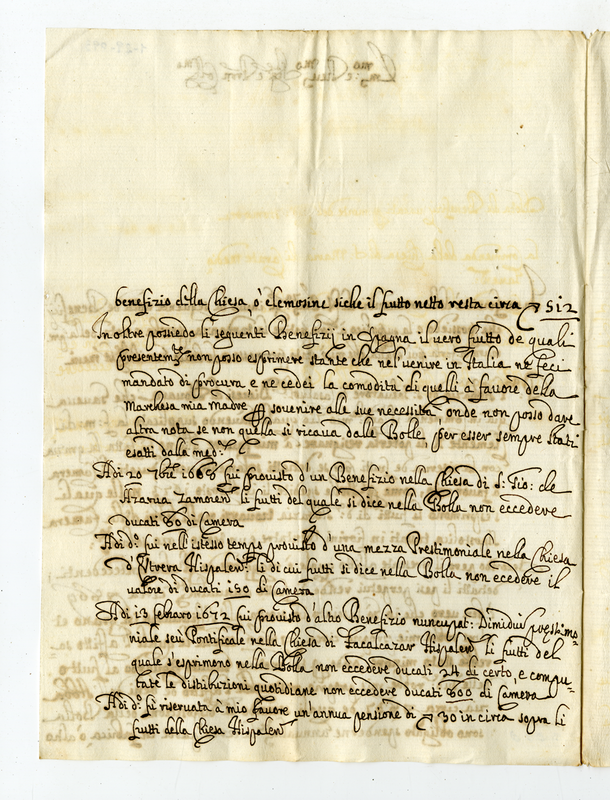 benefizio della Chiesa, ò elemosine siche il frutto netto resta circa 512
In oltre possiedo li seguenti Benefizij in Spagna il vero frutto de quali
presentemte non posso esprimere stante che nel uenire in Italia ne feci
mandato di procura, e ne cedei la comodità di quelli à fauore della
Marchesa mia Madre souenire alle sue necessità onde non posso dare
altra nota se non quella si ricaua dalle Bolle, per esser sempre stati
esatti dalla med:ma
Adi 20 7bre 1668 fui prouisto d'un Benefizio nella Chiesa di S. Gio: de
Azarua Zamoren li frutti del quale si dice nella Bolla non eccedeve
ducati 60 di Camera
Adi do: fui nell'istesso tempo prouisto d'una mezza Prestimoniale nella Chiesa
d'Utrera Hispalen: li di cui frutti si dice nella Bolla non ecedeve il
valore di ducati 150 di Camera
Adi 13 febraro 1672 fui prouisto d'altro Benefizio nuncupat: Dimidiu prestimo-
niale seu Pontificale nella Chiesa di Facalcazar Hispalen li frutti del
quale s'esprimono nella Bolla non eccedeve ducati 24 di certo, e compu-
tate le distibuzioni quotidiane non eccedeve ducati 600 di Camera
Adi do: fu riseruata à mio fauore un'annua pensione di 30 in circa sopra li
frutti della Chiesa Hispalen